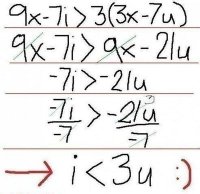 9x-7i>3(3x-7u)
9x-7i>9x-21u
-7i>-21u
-7i/-7 > -21u/-7
→ i<3u :)